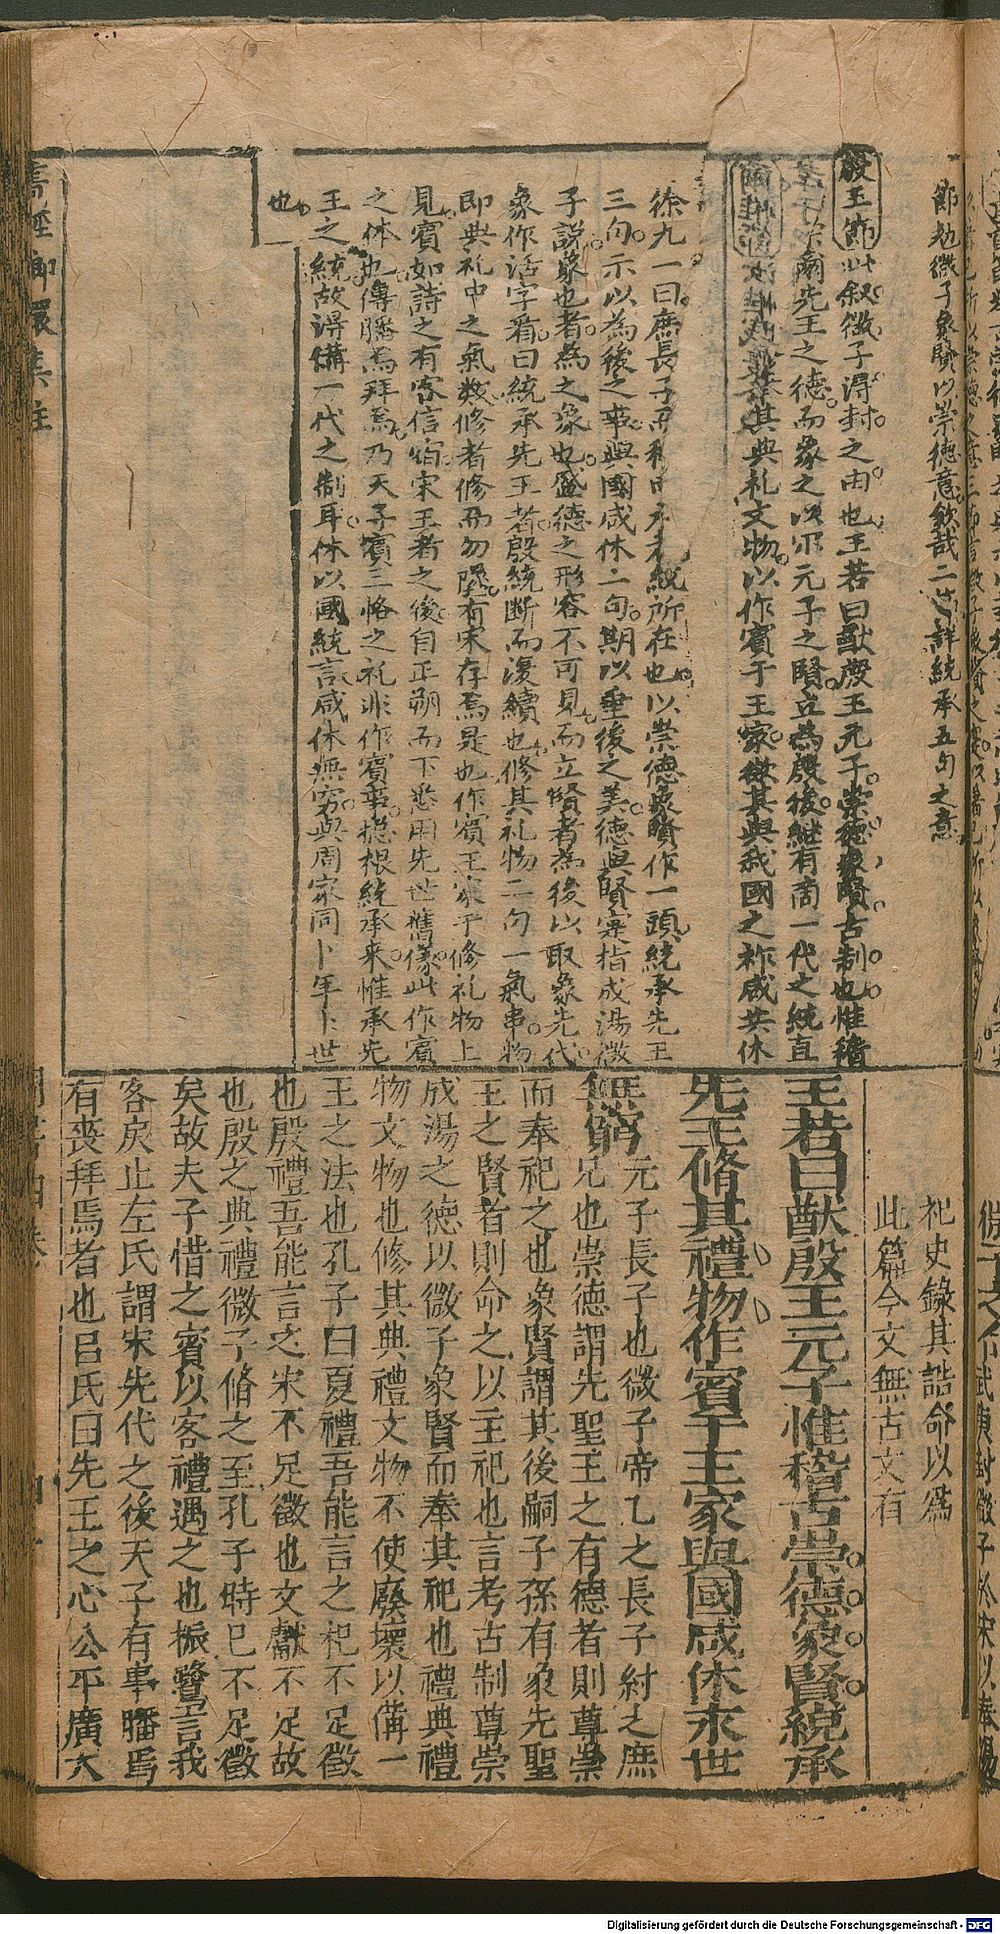 節勉微子象賢以崇德意欽哉二節詳統承五句之意
殷王節此叙微子淂封之由也王若曰猷殷王元子崇德象賢古制也惟稽
爾先王之德而象之以尔元子之賢立為殷後継有商一代之統直
其典礼文物以作賓于王家欲其與我國之祚咸共休
徐九一曰庶長子 統所在也以崇德象賢作一頭統承先王
三句示以為後之事與國咸休二句期以垂後之美德與賢寔指成湯微
子說象也者為之象也盛德之形容不可見而立賢者為後以取象先代
象作活字看曰統承先王者殷統断而復續也修其礼物二句一氣串物
即典礼中之氣数修者修而勿墜有宋存焉是也作賓王家于修礼物上
見賓如詩之有客信宿宋王者之後自正朔而下悉用先世舊儀此作賓
之休也傳膰焉拜焉乃天子賓三恪之礼非作賓事總根統承来惟承先
王之統故淂備一代之制耳休以國統言咸休無窮與周家同卜年卜世
也
祀史錄其誥命以爲
此篇今文無古文有
王若曰猷殷王元子惟稽古崇德象賢統承
先王脩其禮物作賓于王家與國咸休永世
無窮 元子長子也微子帝乙之長子紂之庶
兄也崇德謂先聖王之有德者則尊崇
而奉祀之也象賢謂其後嗣子孫有象先聖
王之賢者則命之以主祀也言考古制尊崇
成湯之德以微子象賢而奉其祀也禮典禮
物文物也修其典禮文物不使廢壞以備一
王之法也孔子曰夏禮吾能言之杞不足徵
也殷禮吾能言之宋不足徵也文獻不足故
也殷之典禮微子脩之至孔子時已不足徵
矣故夫子惜之賓以客禮遇之也振鷺言我
客戾止左氏謂宋先代之後天子有事膰焉
有喪拜焉者也呂氏曰先王之心公平廣大
Digitalisierung gefördert durch die Deutsche Forschungsgemeinschaft - DFG